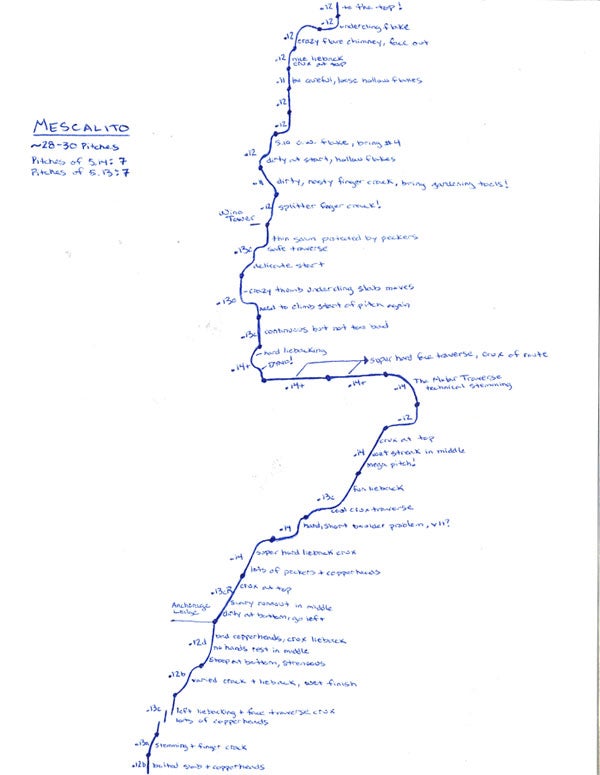 .12 to the top!
.12 undercling flake
.12 crazy flare chimney, face out
.12 nice lieback
crux at top
.11 be careful, loose hollow flakes
.12
.12
5.10 o.w. flake, bring #4
.12 dirty at start, hollow flakes
dirty, nasty finger crack, bring gardening tools!
.12 splitter finger crack!
Wino
Tower
thin seam protected by peckers
.13c safe traverse
delicate start
crazy thumb undercling slab moves
need to climb start of pitch again
.13c continuous but not too bad
hard liebacking
.14+
super hard face traverse, crux of route
.14+ .14+ .14 The Molar Traverse
technical stemming
.12
crux at top
.14 wet streak in middle
mega pitch!
fun lieback
.13c
cool crux traverse
.14 hard, short boulder problem, v11?
.14 super hard lieback crux
lots of peckers + copperheads
.13c R crux at top
scary runout in middle
dirty at bottom, go left
Anchorage
Ledge
.12d bad copperheads, crux lieback
no hands rest in middle
steep at bottom, strenuous
.12b varied crack + lieback, wet finish
.13c left liebacking + face traverse crux
lots of copperheads
.13a stemming + finger crack
.12b bolted slab + copperheads
MESCALITO
~28-30 Pitches
Pitches of 5.14: 7
Pitches of 5.13: 7